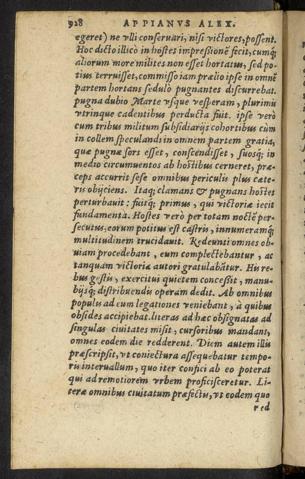 928 APPIANVS ALEX.
egeret) ne vlli conseruari, nisi victores, possent.
Hoc dicto illicò in hostes impressionē fecit, cumq́;
aliorum more milites non esset hortatus, sed po-
tius terruisset, commisso iam prælio ipse in omnē
partem hortans sedulò pugnantes discurrebat.
pugna dubio Marte vsque vesperam, plurimis
vtrinque cadentibus perducta fuit. ipse verò
cum tribus militum subsidiarijs cohortibus cùm
in collem speculandi in omnem partem gratia,
quæ pugnæ sors esset, conscendisset, suosq́; in
medio circumuentos ab hostibus cerneret, præ-
ceps accurrit sese omnibus periculis plus cæte-
ris obijciens. Itaq; clamans & pugnans hostes
perturbauit: fuitq́; primus, qui victoriæ iecit
fundamenta. Hostes verò per totam noctē per-
secutus, eorum potitus est castris, innumeramq́;
multitudinem trucidauit. Redeunti omnes ob-
uiam procedebant, eum complectebantur, ac
tanquam victoriæ autori gratulabātur. His re-
bus gestis, exercitus quietem concessit, manu-
bijsq́; distribuendis operam dedit. Ab omnibus
populis ad eum legationes veniebant, à quibus
obsides accipiebat. literas ad hæc obsignatas ad
singulas ciuitates misit, cursoribus mandans,
omnes eodem die redderent. Diem autem illis
præscripsit, vt coniectura assequebatur tempo-
ris interuallum, quo iter confici ab eo poterat
qui ad remotiorem vrbem proficisceretur. Li-
teræ omnibus ciuitatum præfectis, vt eodem quo
red